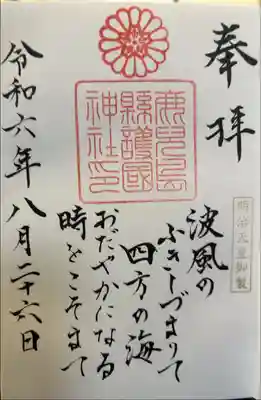 奉拝
鹿兒島
縣護國
神社印
明治天皇御製
波風の
ふきしづまりて
四方の海
おだやかになる
時をこそまて
令和六年八月二十六日